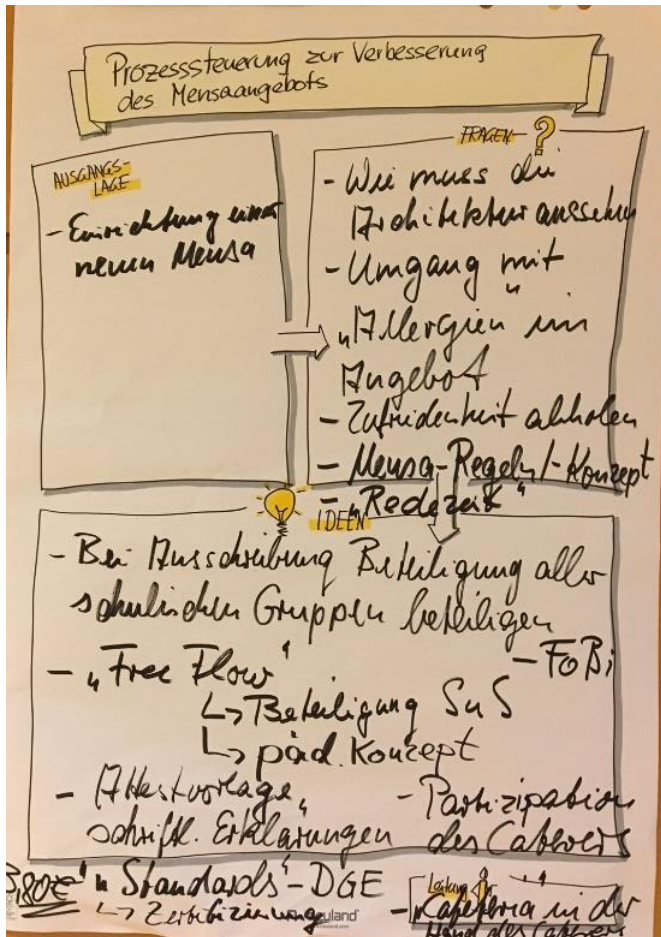 Prozesssteuerung zur Verbesserung
des Mensaangebots
AUSGANGS-
LAGE
- Einrichtung einer
neuen Mensa
FRAGEN ?
- Wie muss die
Architektur aussehen
- Umgang mit
"Allergien" im
Angebot
- Zufriedenheit abholen
- Mensa-Regeln/-Konzept
- "Redezeit"
IDEEN
- Bei Ausschreibung Beteiligung aller
schulischen Gruppen beteiligen
- "Free Flow"
- FoBi
↳ Beteiligung SuS
↳ päd. Konzept
- Attestvorlage,
schriftl. Erklärungen
- Partizipation
des Caterers
3,80€
"Standards" - DGE
↳ Zertifizierung
neuland
Leitung
- Cafeteria in der
Hand des Caterers